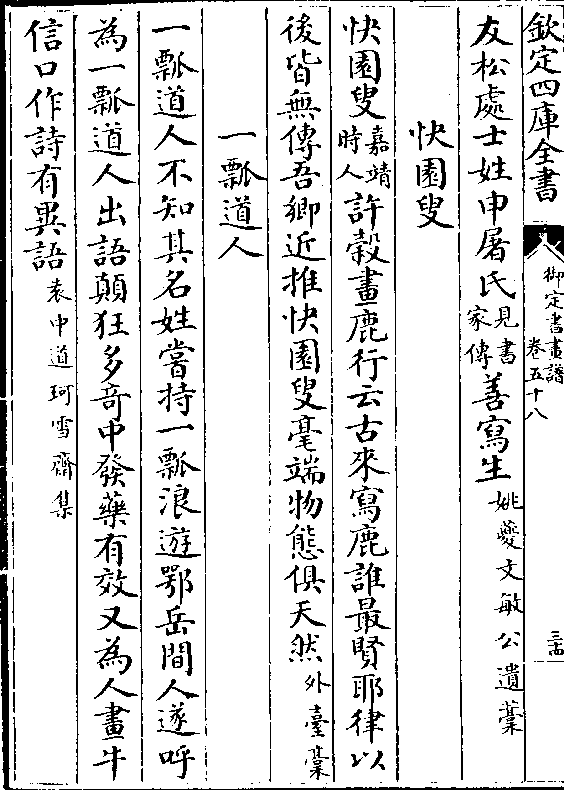 欽定四庫全書
御定書畫譜
卷五十八
三十四
友松處士姓申屠氏見書家傳善寫生姚夔文敏公遺藁
快園叟
快園叟嘉靖時人許穀畫鹿行云古來寫鹿誰最賢耶律以
後皆無傳吾鄉近推快園叟毫端物態俱天然外臺藁
一瓢道人
一瓢道人不知其名姓嘗持一瓢浪遊鄂岳間人遂呼
為一瓢道人出語顛狂多竒中發藥有效又為人畫牛
信口作詩有異語袁中道珂雪齋集